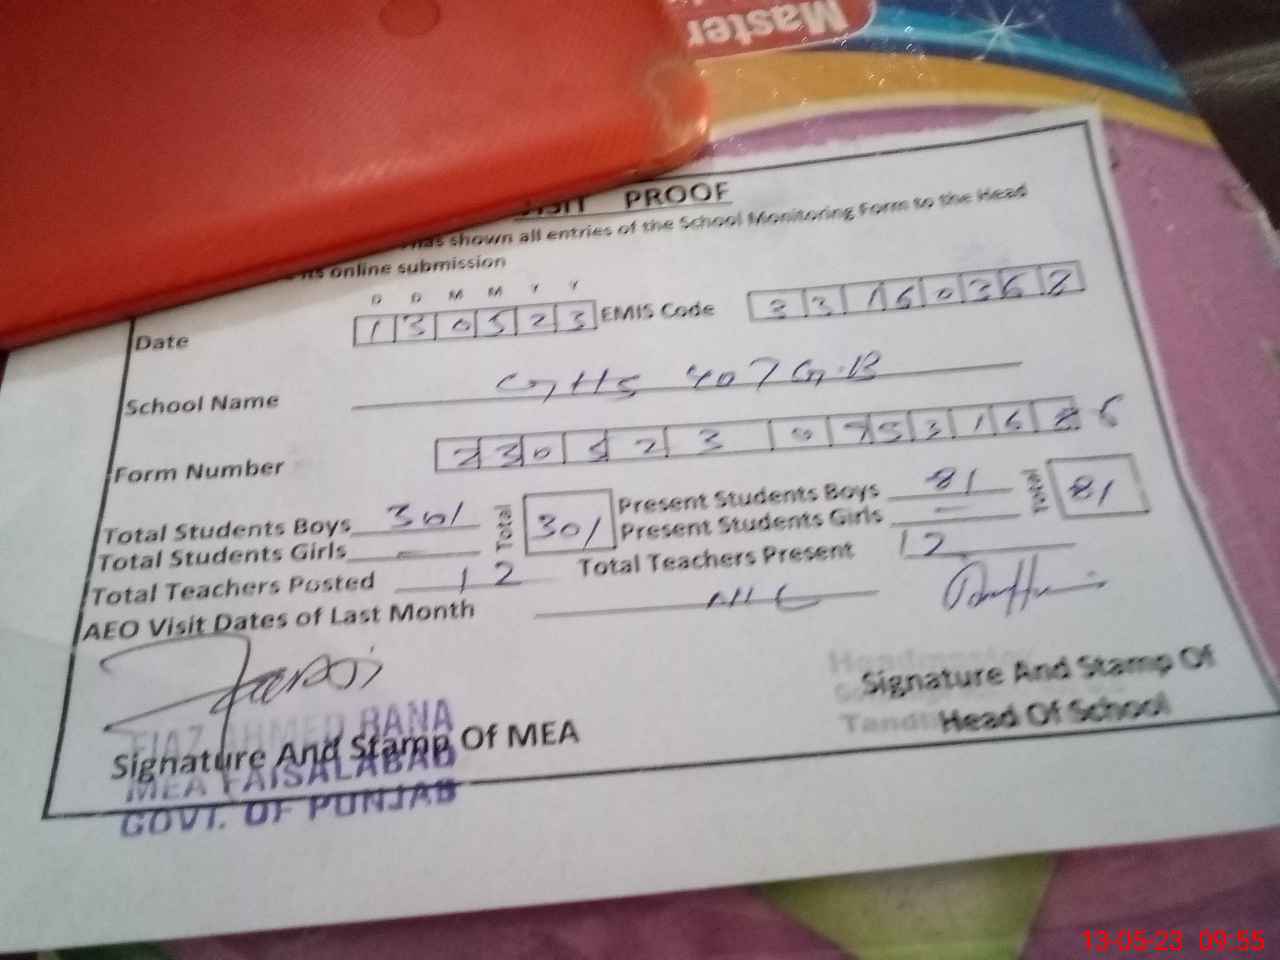 Master
VISIT PROOF
has shown all entries of the School Monitoring Form to the Head
its online submission
D D M M Y Y
Date 1 3 0 5 2 3 EMIS Code 3 3 1 6 0 3 6 8
School Name GHS 407 G.B
Form Number
Total Students Boys 301 Total 301 Present Students Boys 81 Total 81
Total Students Girls — Present Students Girls —
Total Teachers Posted 12 Total Teachers Present 12
AEO Visit Dates of Last Month
Signature And Stamp Of MEA
AHMED RANA
MEA FAISALABAD
GOVT. OF PUNJAB
Headmaster
Signature And Stamp Of
Head Of School
13-05-23 09:55